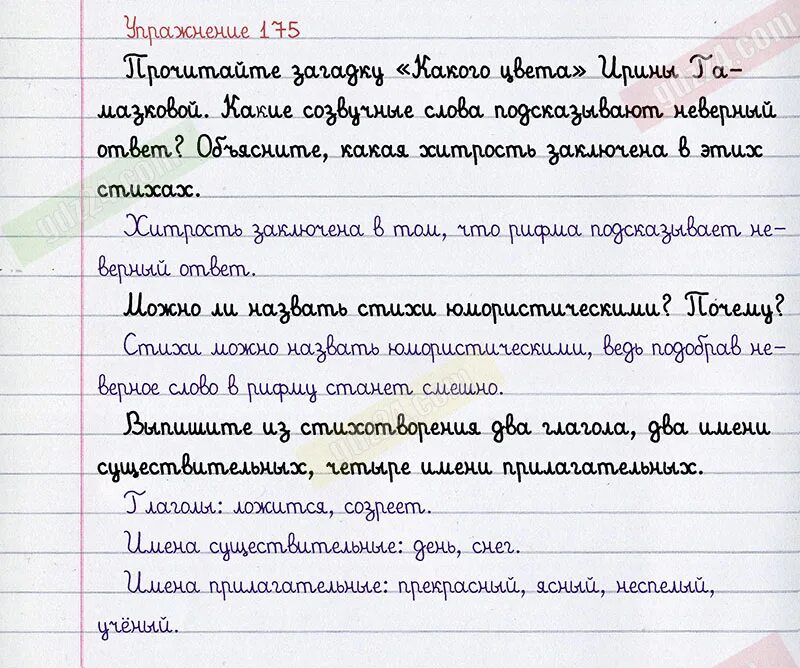 Упражнение 175
Прочитайте загадку «Какого цвета» Ирины Га-
мазковой. Какие созвучные слова подсказывают неверный
ответ? Объясните, какая хитрость заключена в этих
стихах.
Хитрость заключена в том, что рифма подсказывает не-
верный ответ.
Можно ли назвать стихи юмористическими? Почему?
Стихи можно назвать юмористическими, ведь подобрав не-
верное слово в рифму станет смешно.
Выпишите из стихотворения два глагола, два имени
существительных, четыре имени прилагательных.
Глаголы: ложится, созреет.
Имена существительные: день, снег.
Имена прилагательные: прекрасный, ясный, неспелый,
учёный.